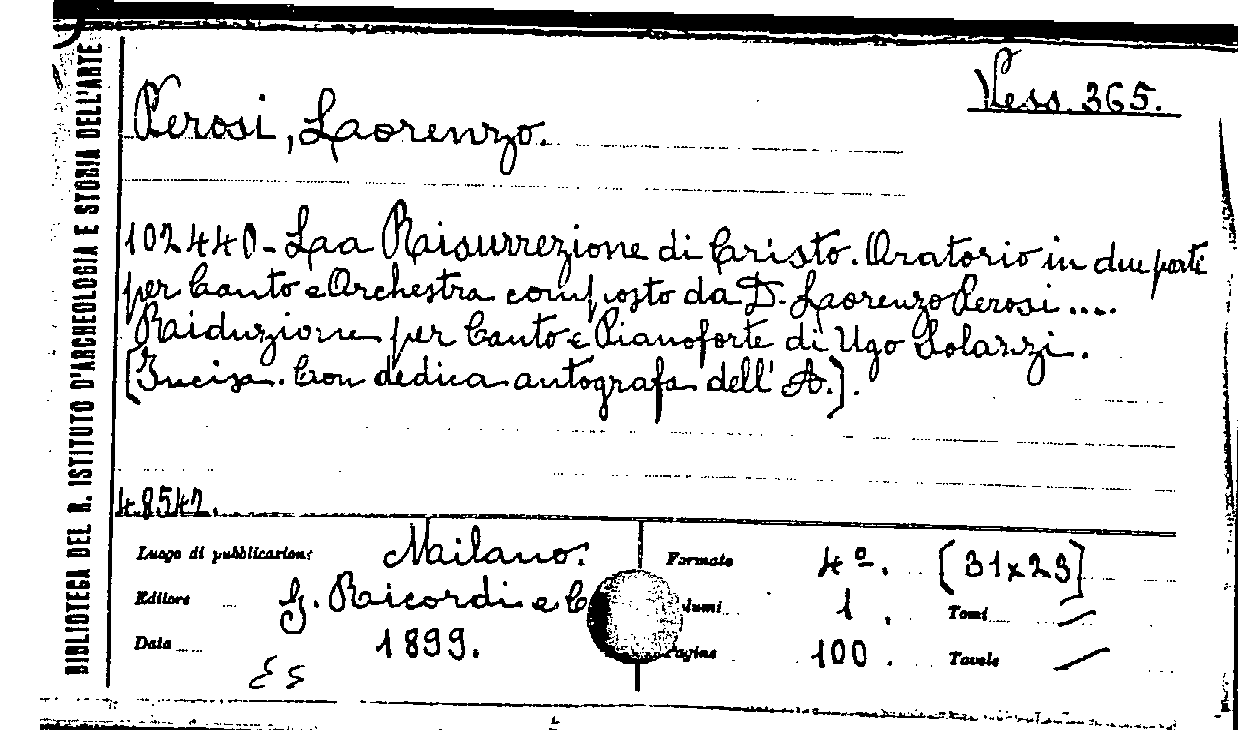 BIBLIOTECA DEL R. ISTITUTO D'ARCHEOLOGIA E STORIA DELL'ARTE
Vess. 365.
Perosi, Lorenzo.
102440 - La Risurrezione di Cristo. Oratorio in due parti
per Canto e Orchestra composto da D. Lorenzo Perosi ....
Riduzione per Canto e Pianoforte di Ugo Solazzi.
[Incisa. Con dedica autografa dell' A.].
48542.
Luogo di pubblicazione Milano.
Editore G. Ricordi e C
Data 1899.
Formato 4º. [31x23]
lumi 1. Tomi —
Pagine 100. Tavole —